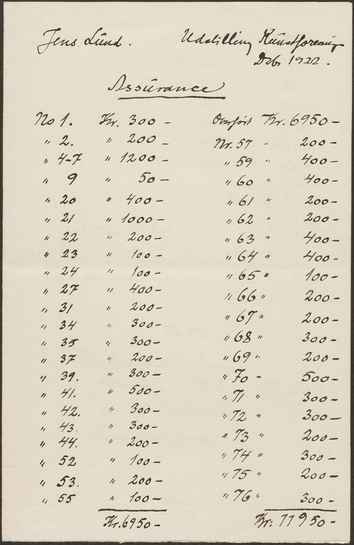 Jens Lund.
Udstilling Kunstforening
Dcb. 1922.
Assurance
No 1. Kr. 300 –
" 2. " 200 –
" 4-7 " 1200 –
" 9 " 50 –
" 20 " 400 –
" 21 " 1000 –
" 22 " 200 –
" 23 " 100 –
" 24 " 100 –
" 27 " 400 –
" 31 " 200 –
" 34 " 300 –
" 35 " 300 –
" 37 " 200 –
" 39. " 300 –
" 41. " 500 –
" 42. " 300 –
" 43. " 300 –
" 44. " 200 –
" 52 " 100 –
" 53. " 200 –
" 55 " 100 –
Kr. 6950 –
Overført Kr. 6950 –
Nr. 57 – 200 –
" 59 " 400 –
" 60 " 400 –
" 61 " 200 –
" 62 " 200 –
" 63 " 400 –
" 64 " 400 –
" 65 " 100 –
" 66 " 200 –
" 67 " 200 –
" 68 " 300 –
" 69 " 200 –
" 70 – 500 –
" 71 " 300 –
" 72 " 300 –
" 73 " 200 –
" 74 " 300 –
" 75 " 200 –
" 76 " 300 –
Kr. 11950 –